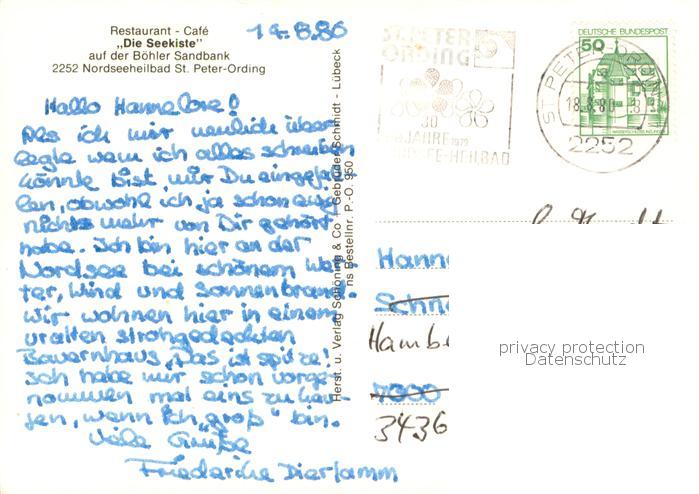 Restaurant - Café
„Die Seekiste"
auf der Böhler Sandbank
2252 Nordseeheilbad St. Peter-Ording
Hallo Hannelore!
Als ich mir neulich über
legte wem ich alles schreiben
könnte bist mir Du eingefal
len, obwohl ich ja schon ewig
nichts mehr von Dir gehört
habe. Ich bin hier an der
Nordsee bei schönem Wet
ter, Wind und Sonnenbrand.
Wir wohnen hier in einem
uralten strohgedeckten
Bauernhaus, Das ist spitze!
Ich habe mir schon vorge
nommen mal eins zu kau
fen, wenn ich „groß" bin.
Viele Grüße
Friederike Dierlamm
Herst. u. Verlag Schöning & Co + Gebrüder Schmidt - Lübeck
ns Bestellnr. P.-O. 950
ST. PETER
ORDING
30
JAHRE 1979
HEILBAD
DEUTSCHE BUNDESPOST
50
ST. PETER-ORDING
2252
Hann
Schn
Hambe
7000
3436
privacy protection
Datenschutz